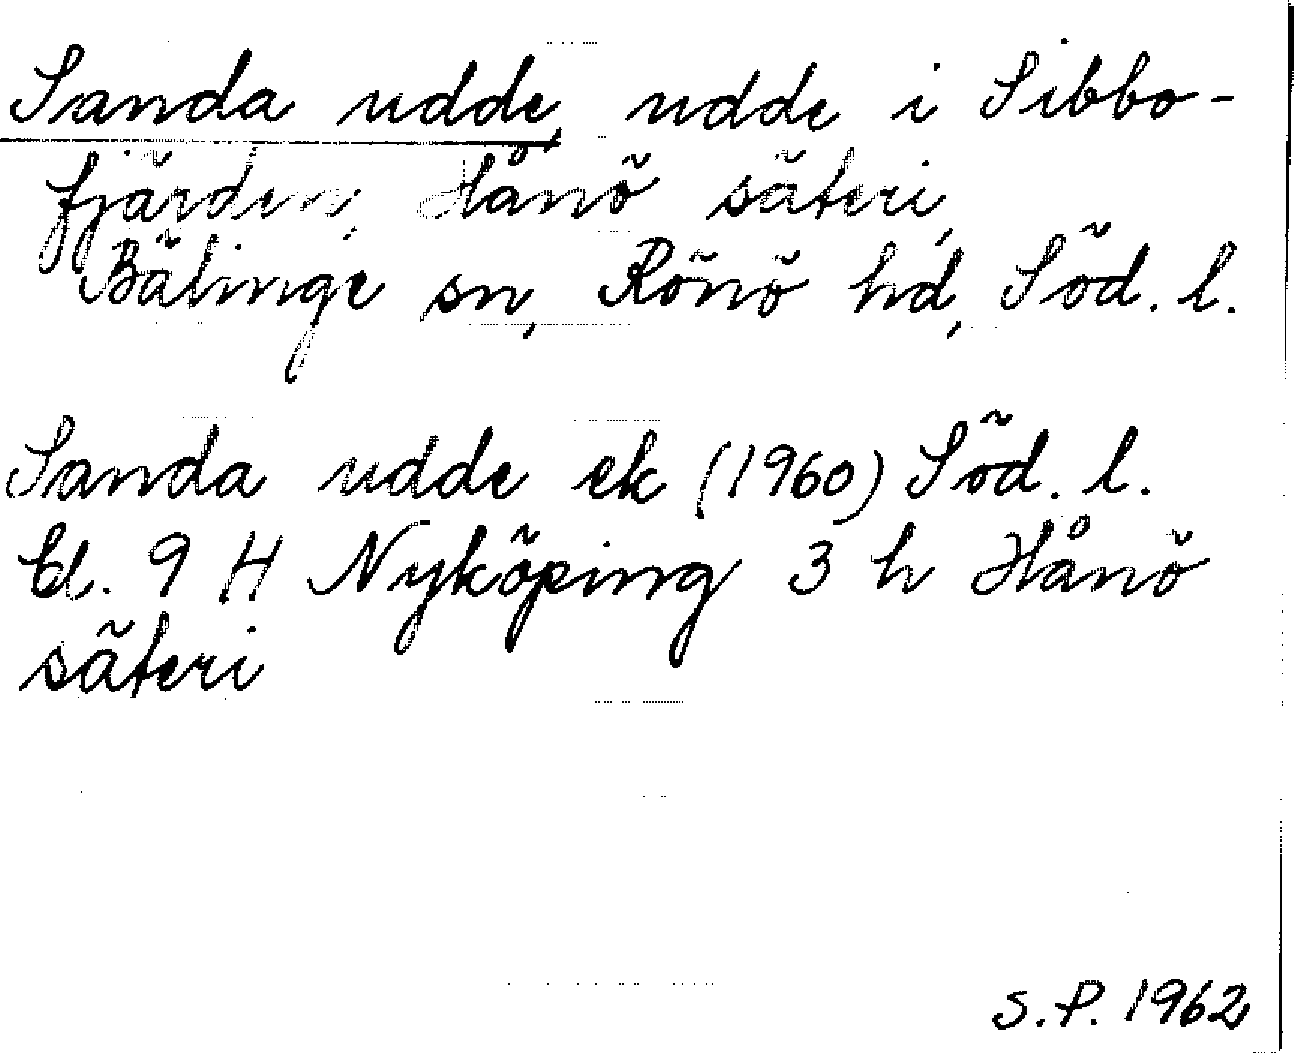 Sanda udde, udde i Sibbo-
fjärden, Hånö säteri,
Bälinge sn, Rönö hd, Söd. l.
Sanda udde ek (1960) Söd. l.
Bl. 9 H Nyköping 3 h Hånö
säteri
S.P. 1962